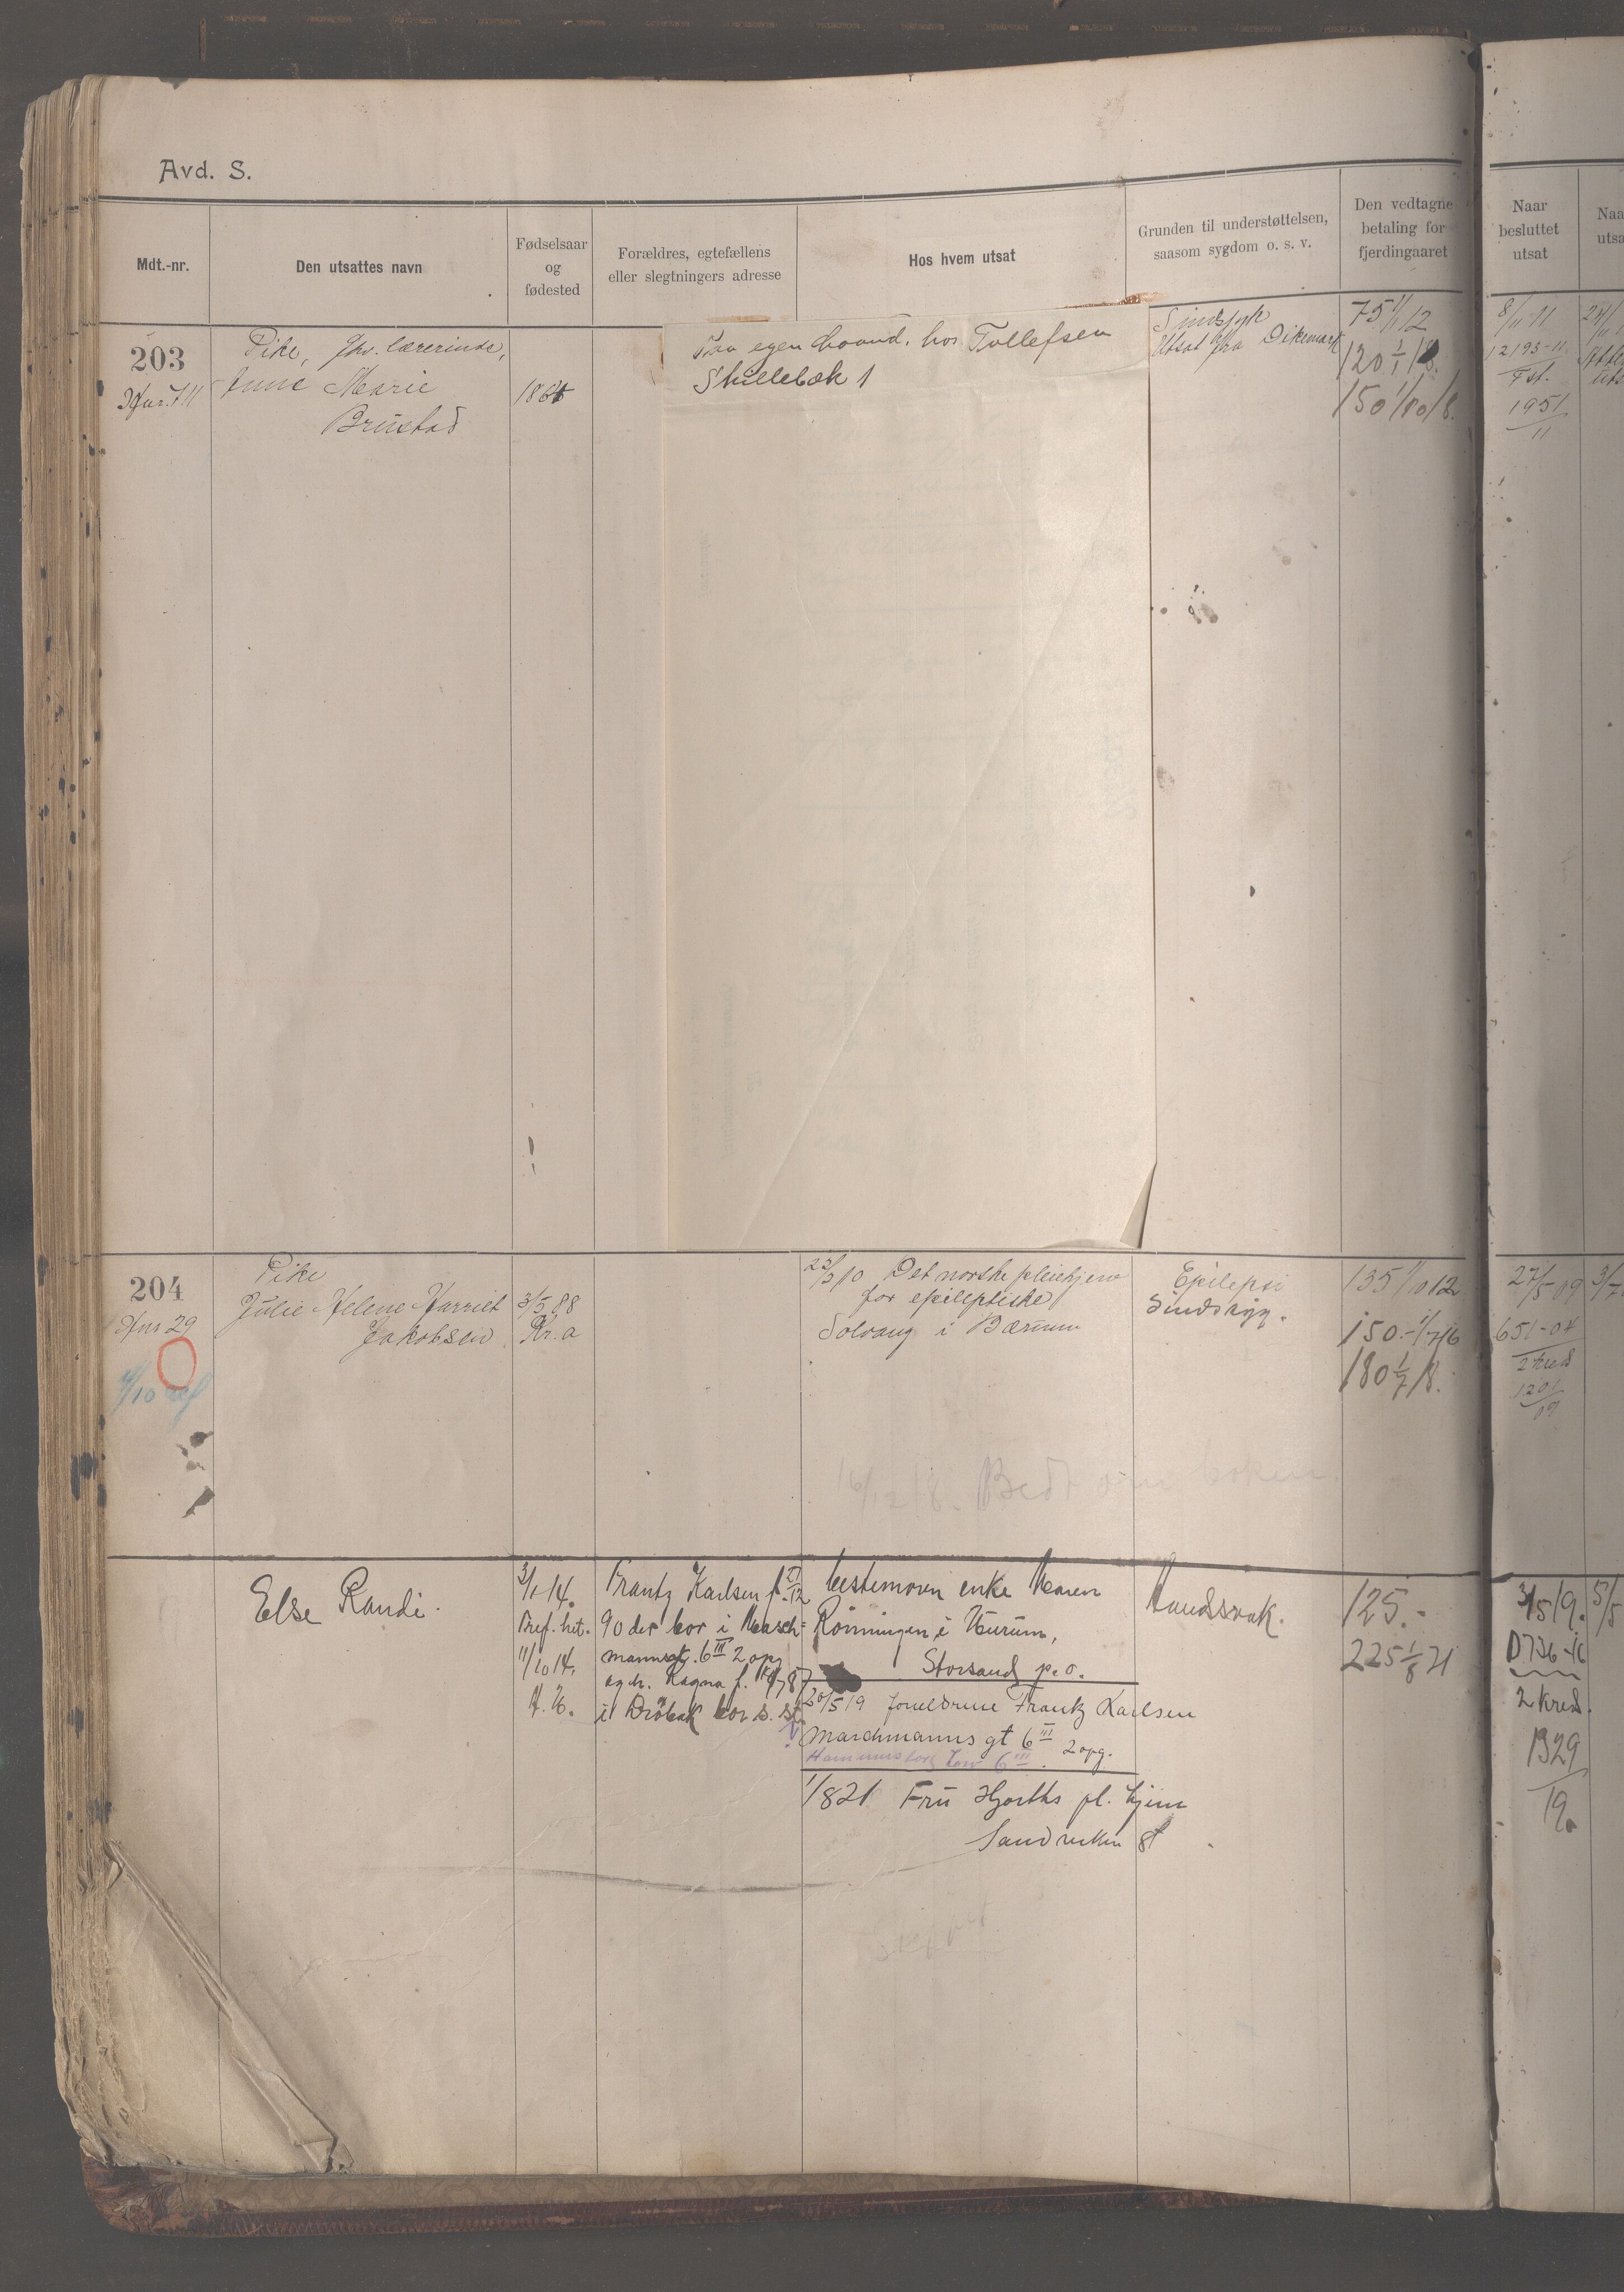 Avd. S.
Mdt.-nr.
Den utsattes navn
Fødselsaar
og
fødested
Forældres, egtefællens
eller slegtningers adresse
Hos hvem utsat
Grunden til understøttelsen,
saasom sygdom o. s. v.
Den vedtagne
betaling for
fjerdingaaret
Naar
besluttet
utsat
Naa
utsa
203
Pike, fhv. lærerinde,
Anne Marie
Brustad
Paa egen haand, hos Tollefsen
Skillebæk 1
Sindssyk
Utsat fra Dikemark
75 1/1 12
120 1/1 18.
150 1/10 18.
8/11-11
12193-11
Fst.
1951
11
204
Pike
Julie Helene Harriet
Jakobsen
3/5 88
Kr.a
23/2 10 Det norske pleiehjem
for epileptiske
Solvang i Bærum
Epilepsi
Sindssyg.
135 1/10 12
150.- 1/7 16
180 1/7 18.
27/5-09
651-04
2 kred
1201
09
3/7
16/12 18. Bedt om boken
Else Randi.
3/1 14.
11/10 14.
Frantz Karlsen f. 21/12
90 der bor i Masch-
mannsgt. 6 III 2 opg
og h. Ragna f. 87
i Drøbak bor s. st.
bestemoren enke Maren
Rønningen i Hurum,
Storsand p.o.
20/5 19 forældrene Frantz Karlsen
Marchmanns gt 6 III 2 opg.
1/8 21 Fru Hjorths pl. hjem
Sandviken st
Aandssvak.
125.-
225 1/8 21
3/5 19.
D736-16
2 kred.
1329
19.
5/5